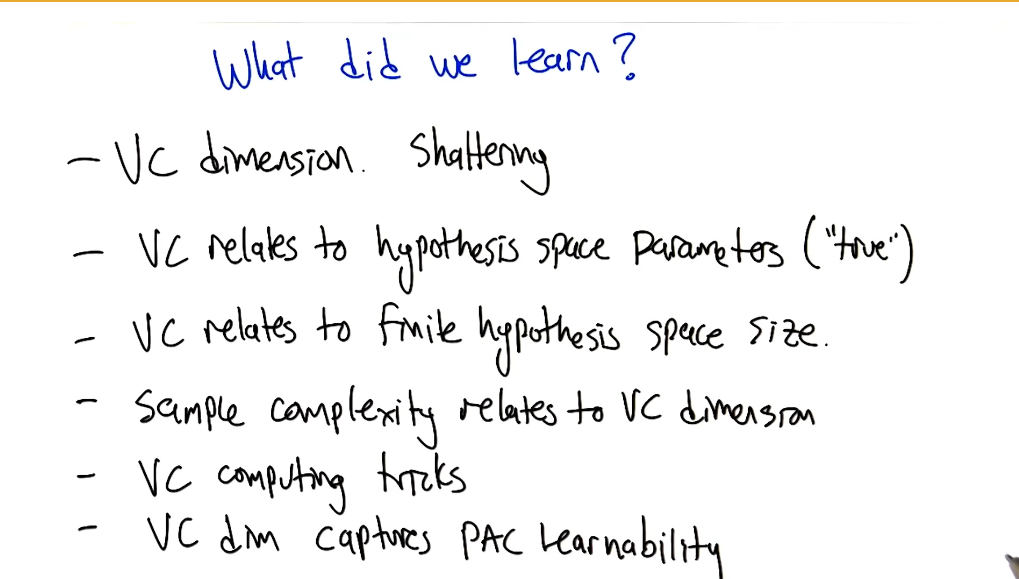 What did we learn?
- VC dimension. Shattering
- VC relates to hypothesis space parameters ("true")
- VC relates to finite hypothesis space size.
- Sample complexity relates to VC dimension
- VC computing tricks
- VC dim captures PAC Learnability